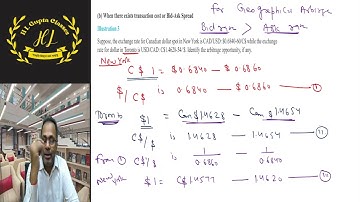 Hi Gupta Classes
(b) When there exists transaction cost or Bid-Ask Spread
Illustration 5
Suppose, the exchange rate for Canadian dollar spot in New York is CAD/USD: $0.6840-60/C$ while the exchange
rate for dollar in Toronto is USD/CAD: C$1.4628-54/$. Identify the arbitrage opportunity, if any.
for Geographical Arbitrage
Bid > Ask
New York
C$ 1 = $0.6840 - $0.6860
$/C$ is 0.6840 - 0.6860 (1)
Toronto $1 = Can $1.4628 - Can $1.4654
C$/$ is 1.4628 - 1.4654 (11)
From (1) C$/$ is 1/0.6860 - 1/0.6840
New York $1 = C$1.4577 - 1.4620